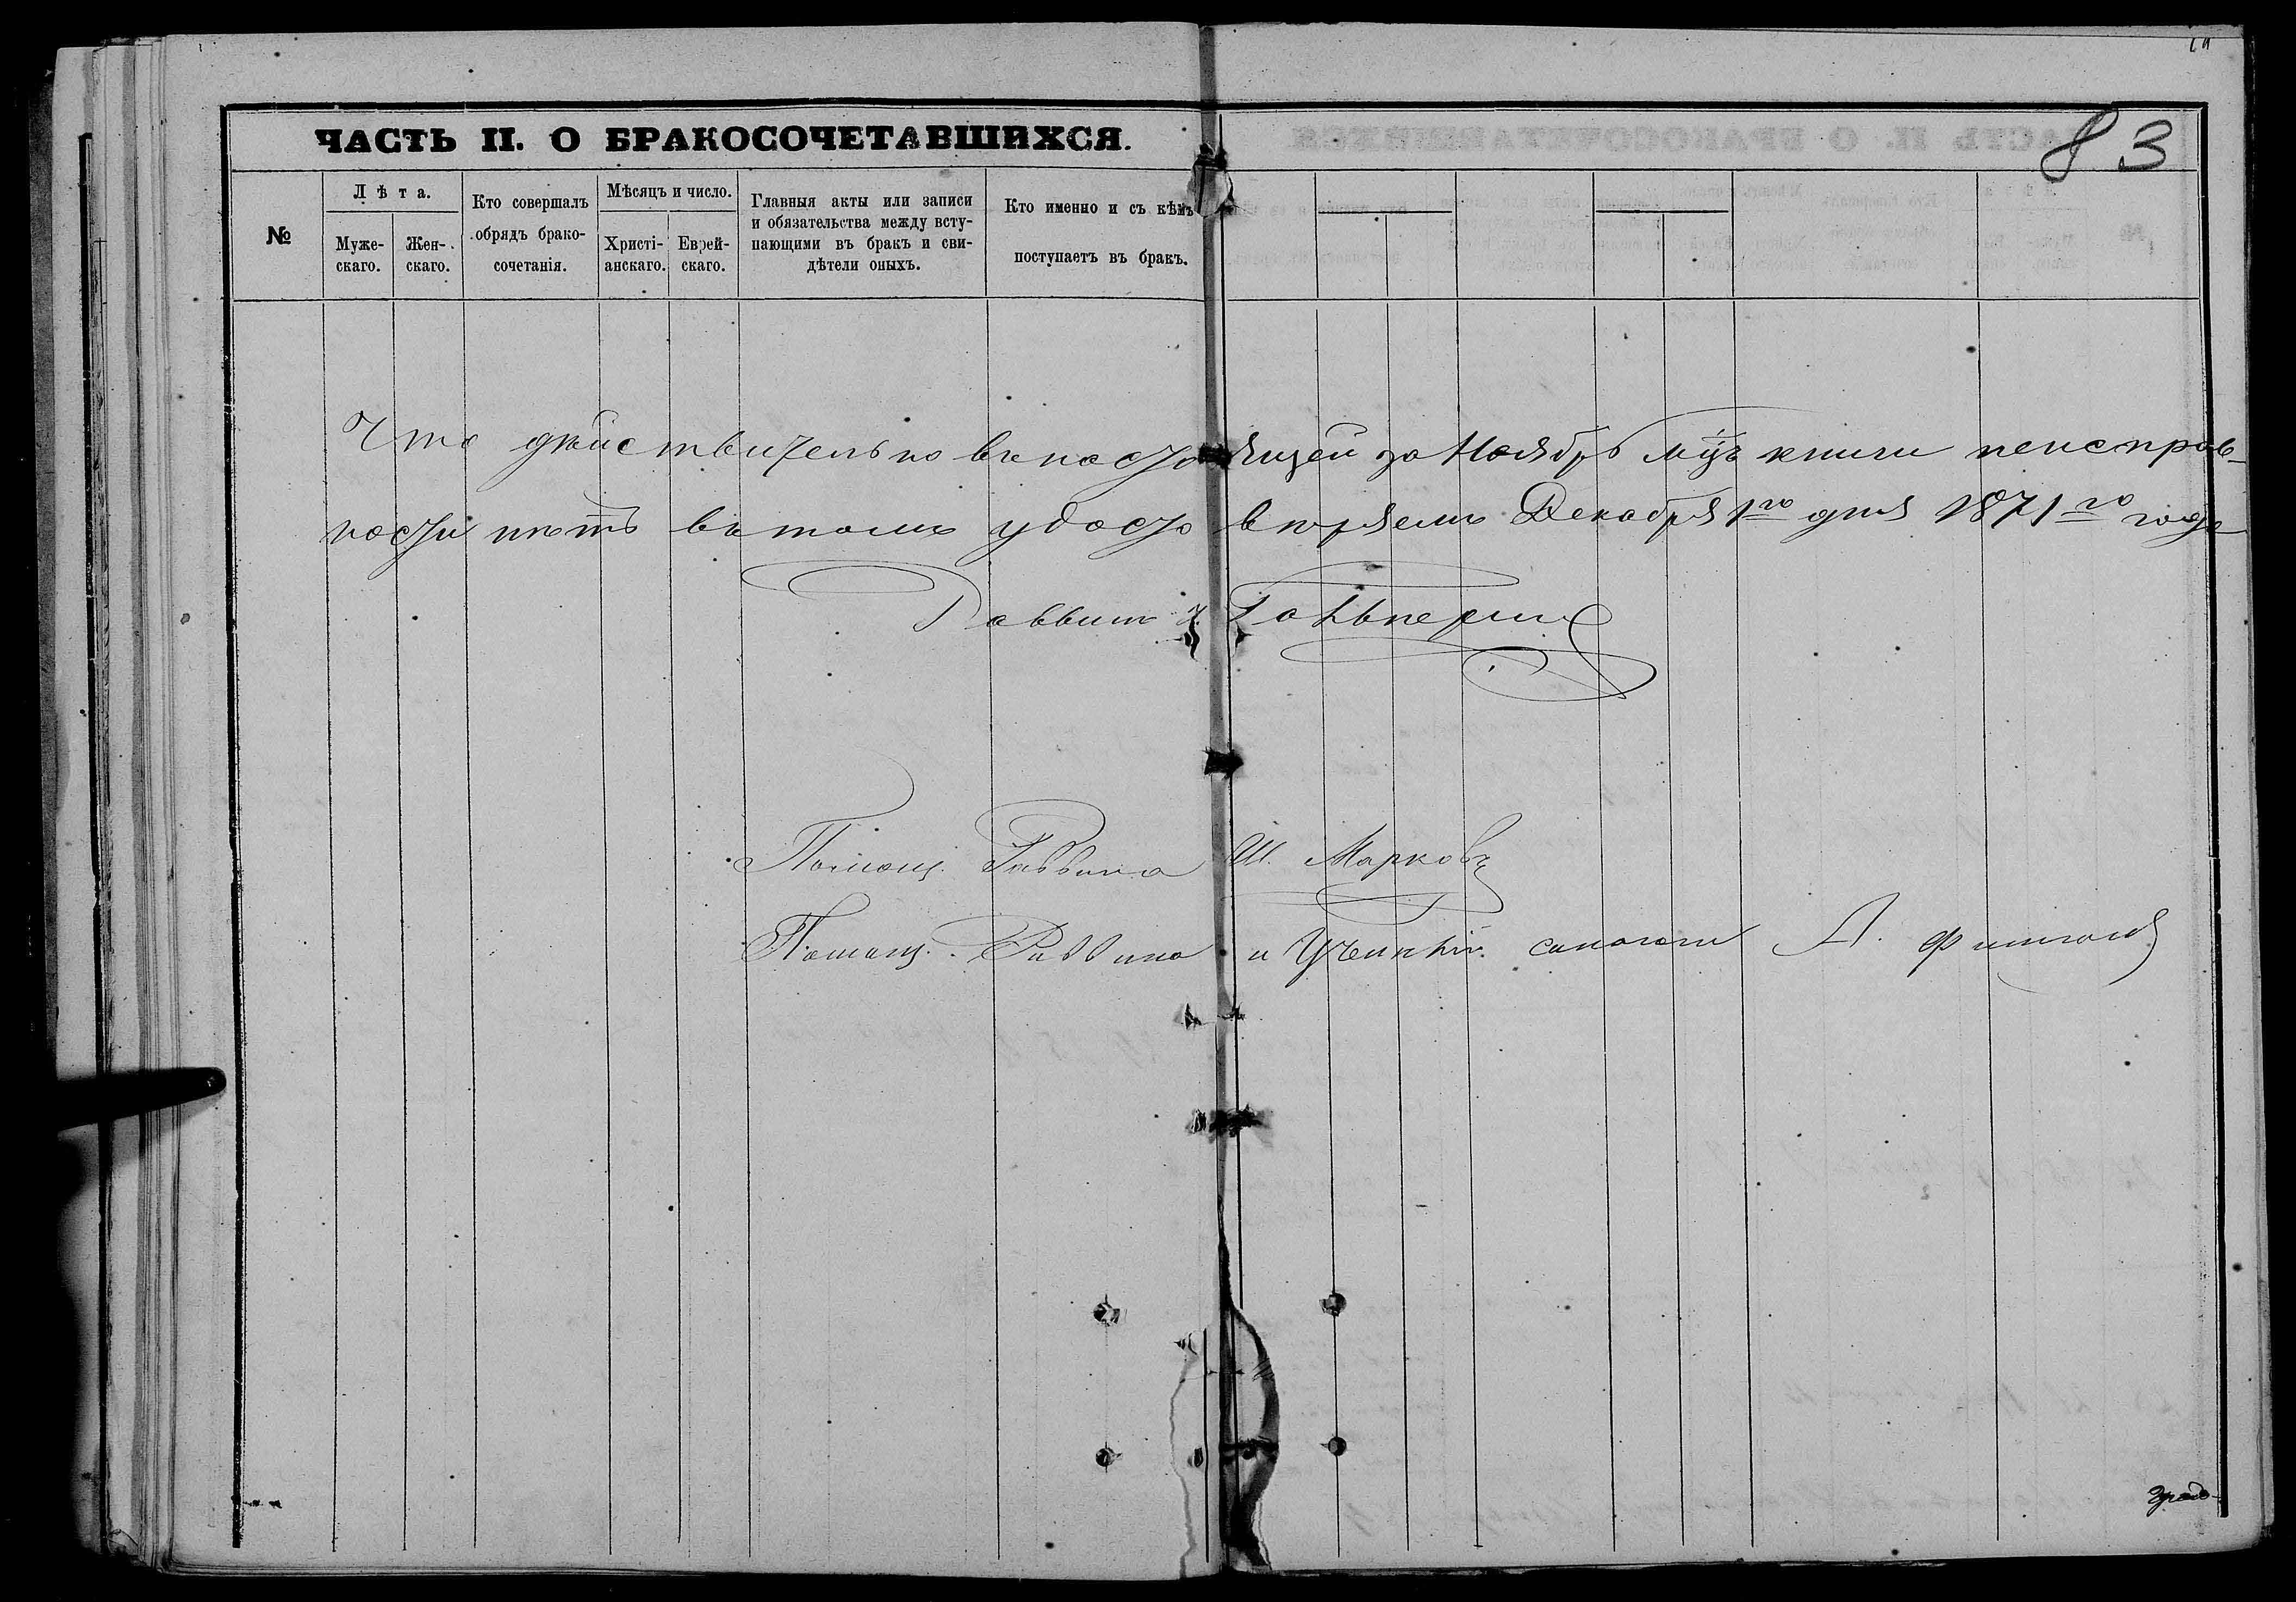 83
ЧАСТЬ II. О БРАКОСОЧЕТАВШИХСЯ.
№
Лѣта.
Муже-
скаго.
Жен-
скаго.
Кто совершалъ
обрядъ брако-
сочетанія.
Мѣсяцъ и число.
Христі-
анскаго.
Еврей-
скаго.
Главныя акты или записи
и обязательства между всту-
пающими въ бракъ и сви-
дѣтели оныхъ.
Кто именно и съ кѣмъ
поступаетъ въ бракъ.
Что дѣйствительно въ настоящей за Ноябрь мц̃ъ книги неисправ-
ности нѣтъ въ томъ удостовѣряемъ Декабря 1го дня 1871го года
Раввинъ Гальперинъ
Помощ. Раввина Ш. Марковъ
Помощ. Раввина и синагоги А.